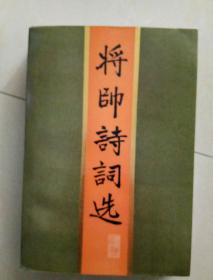 将帥詩詞选